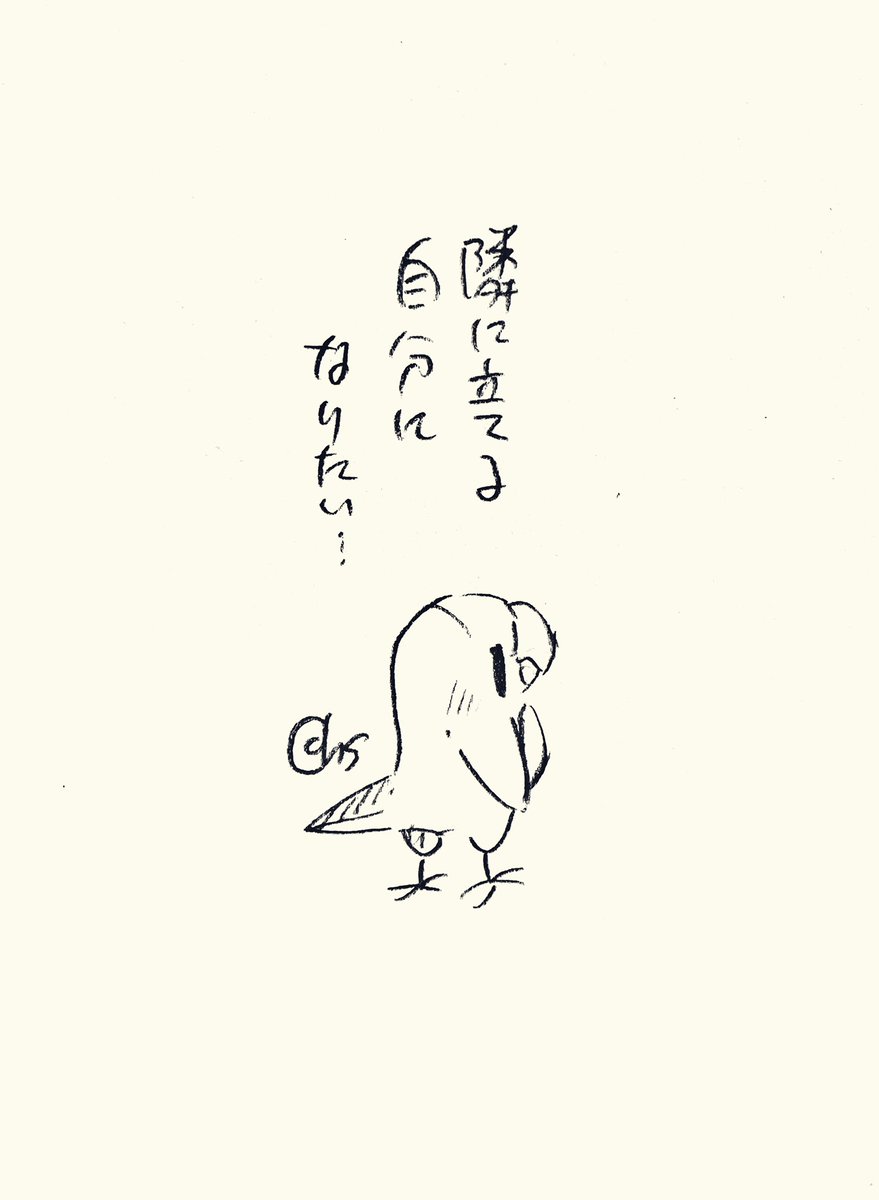 隣に立てる
自分に
なりたい…